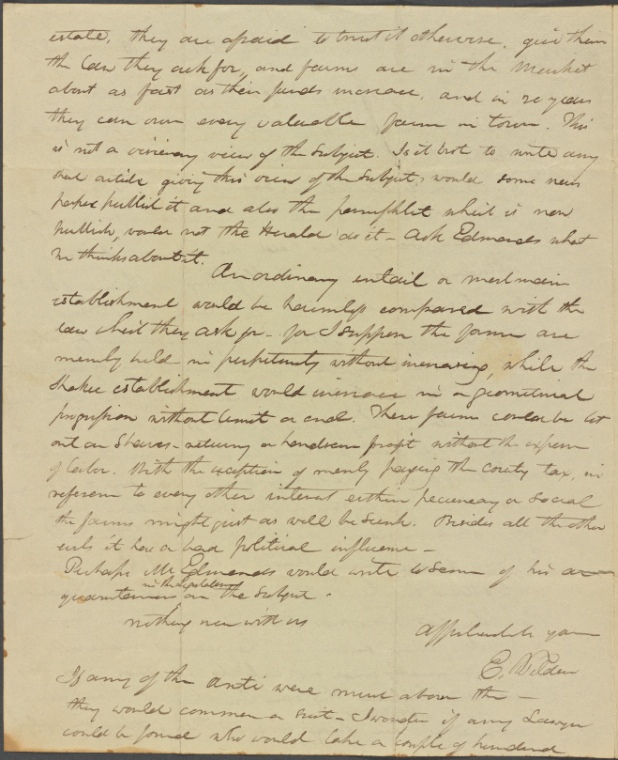 estate, they are afraid to trust it otherwise, give them
the law they ask for, and farms are in the market
about as fast as their funds increase, and in 20 years
they can own every valuable farm in town. This
is not a visionary view of the subject. Is it best to write any
article giving this view of the subject, would some news
paper publish it and also the pamphlet which is now
publish, would not the Herald do it – Ask Edmonds what
he thinks about it.
An ordinary entail or mortmain
establishment would be harmless compared with the
law which they ask for – for I suppose the former are
merely held in perpetuity without increasing, while the
Shaker establishment would increase in a geometrical
progression without limit or end. These farms could be let
out on Shares – returning a handsome profit without the expense
of labor. With the exception of merely paying the County tax, in
reference to every other interest either pecuniary or social
the farms might just as well be sunk. Besides all the other
evils it has a bad political influence –
Perhaps Mr Edmonds would write to some of his ac–
in the Legislature
quaintances on the subject.
nothing new with us
Affectionately your
E. Tilden
If any of the anti were men above the –
they would commence a suit – I wonder if any Lawyer
could be found who would take a couple of hundred